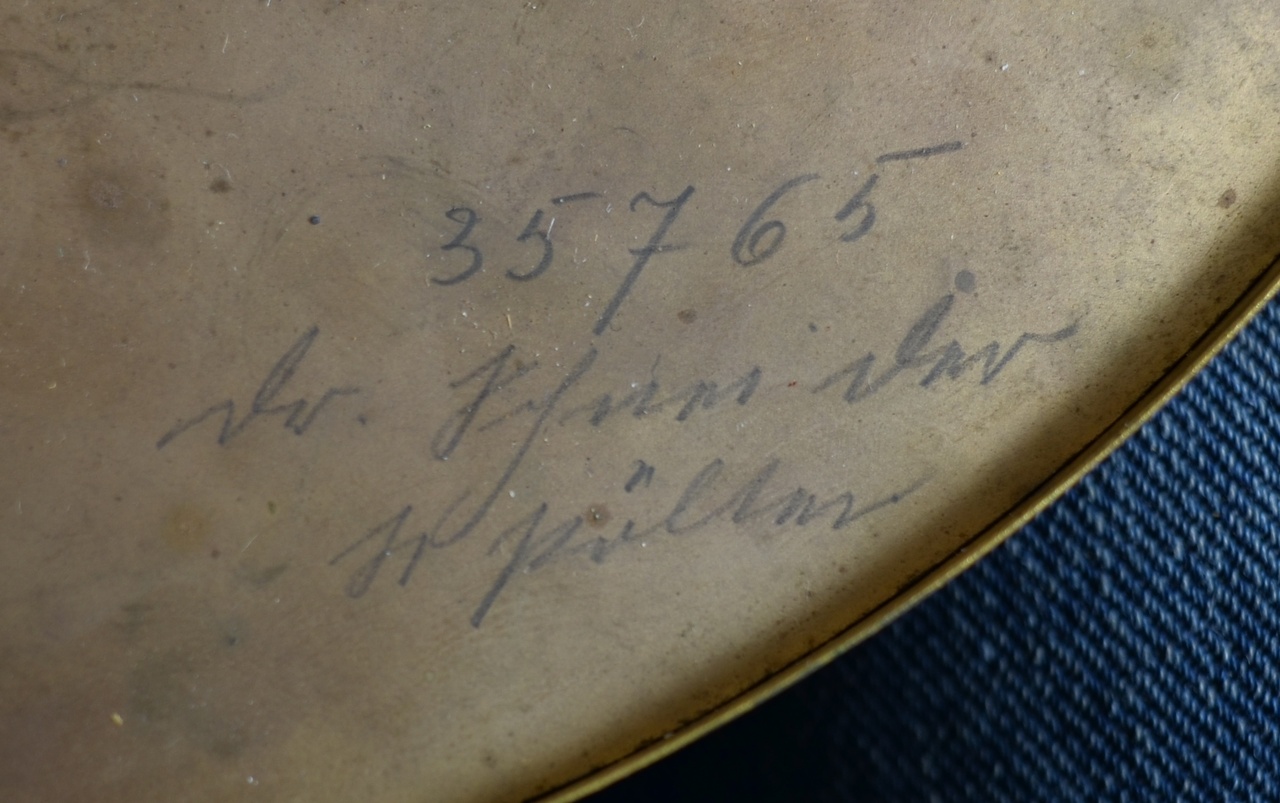 35765
Dr. Schneider
St Pölten